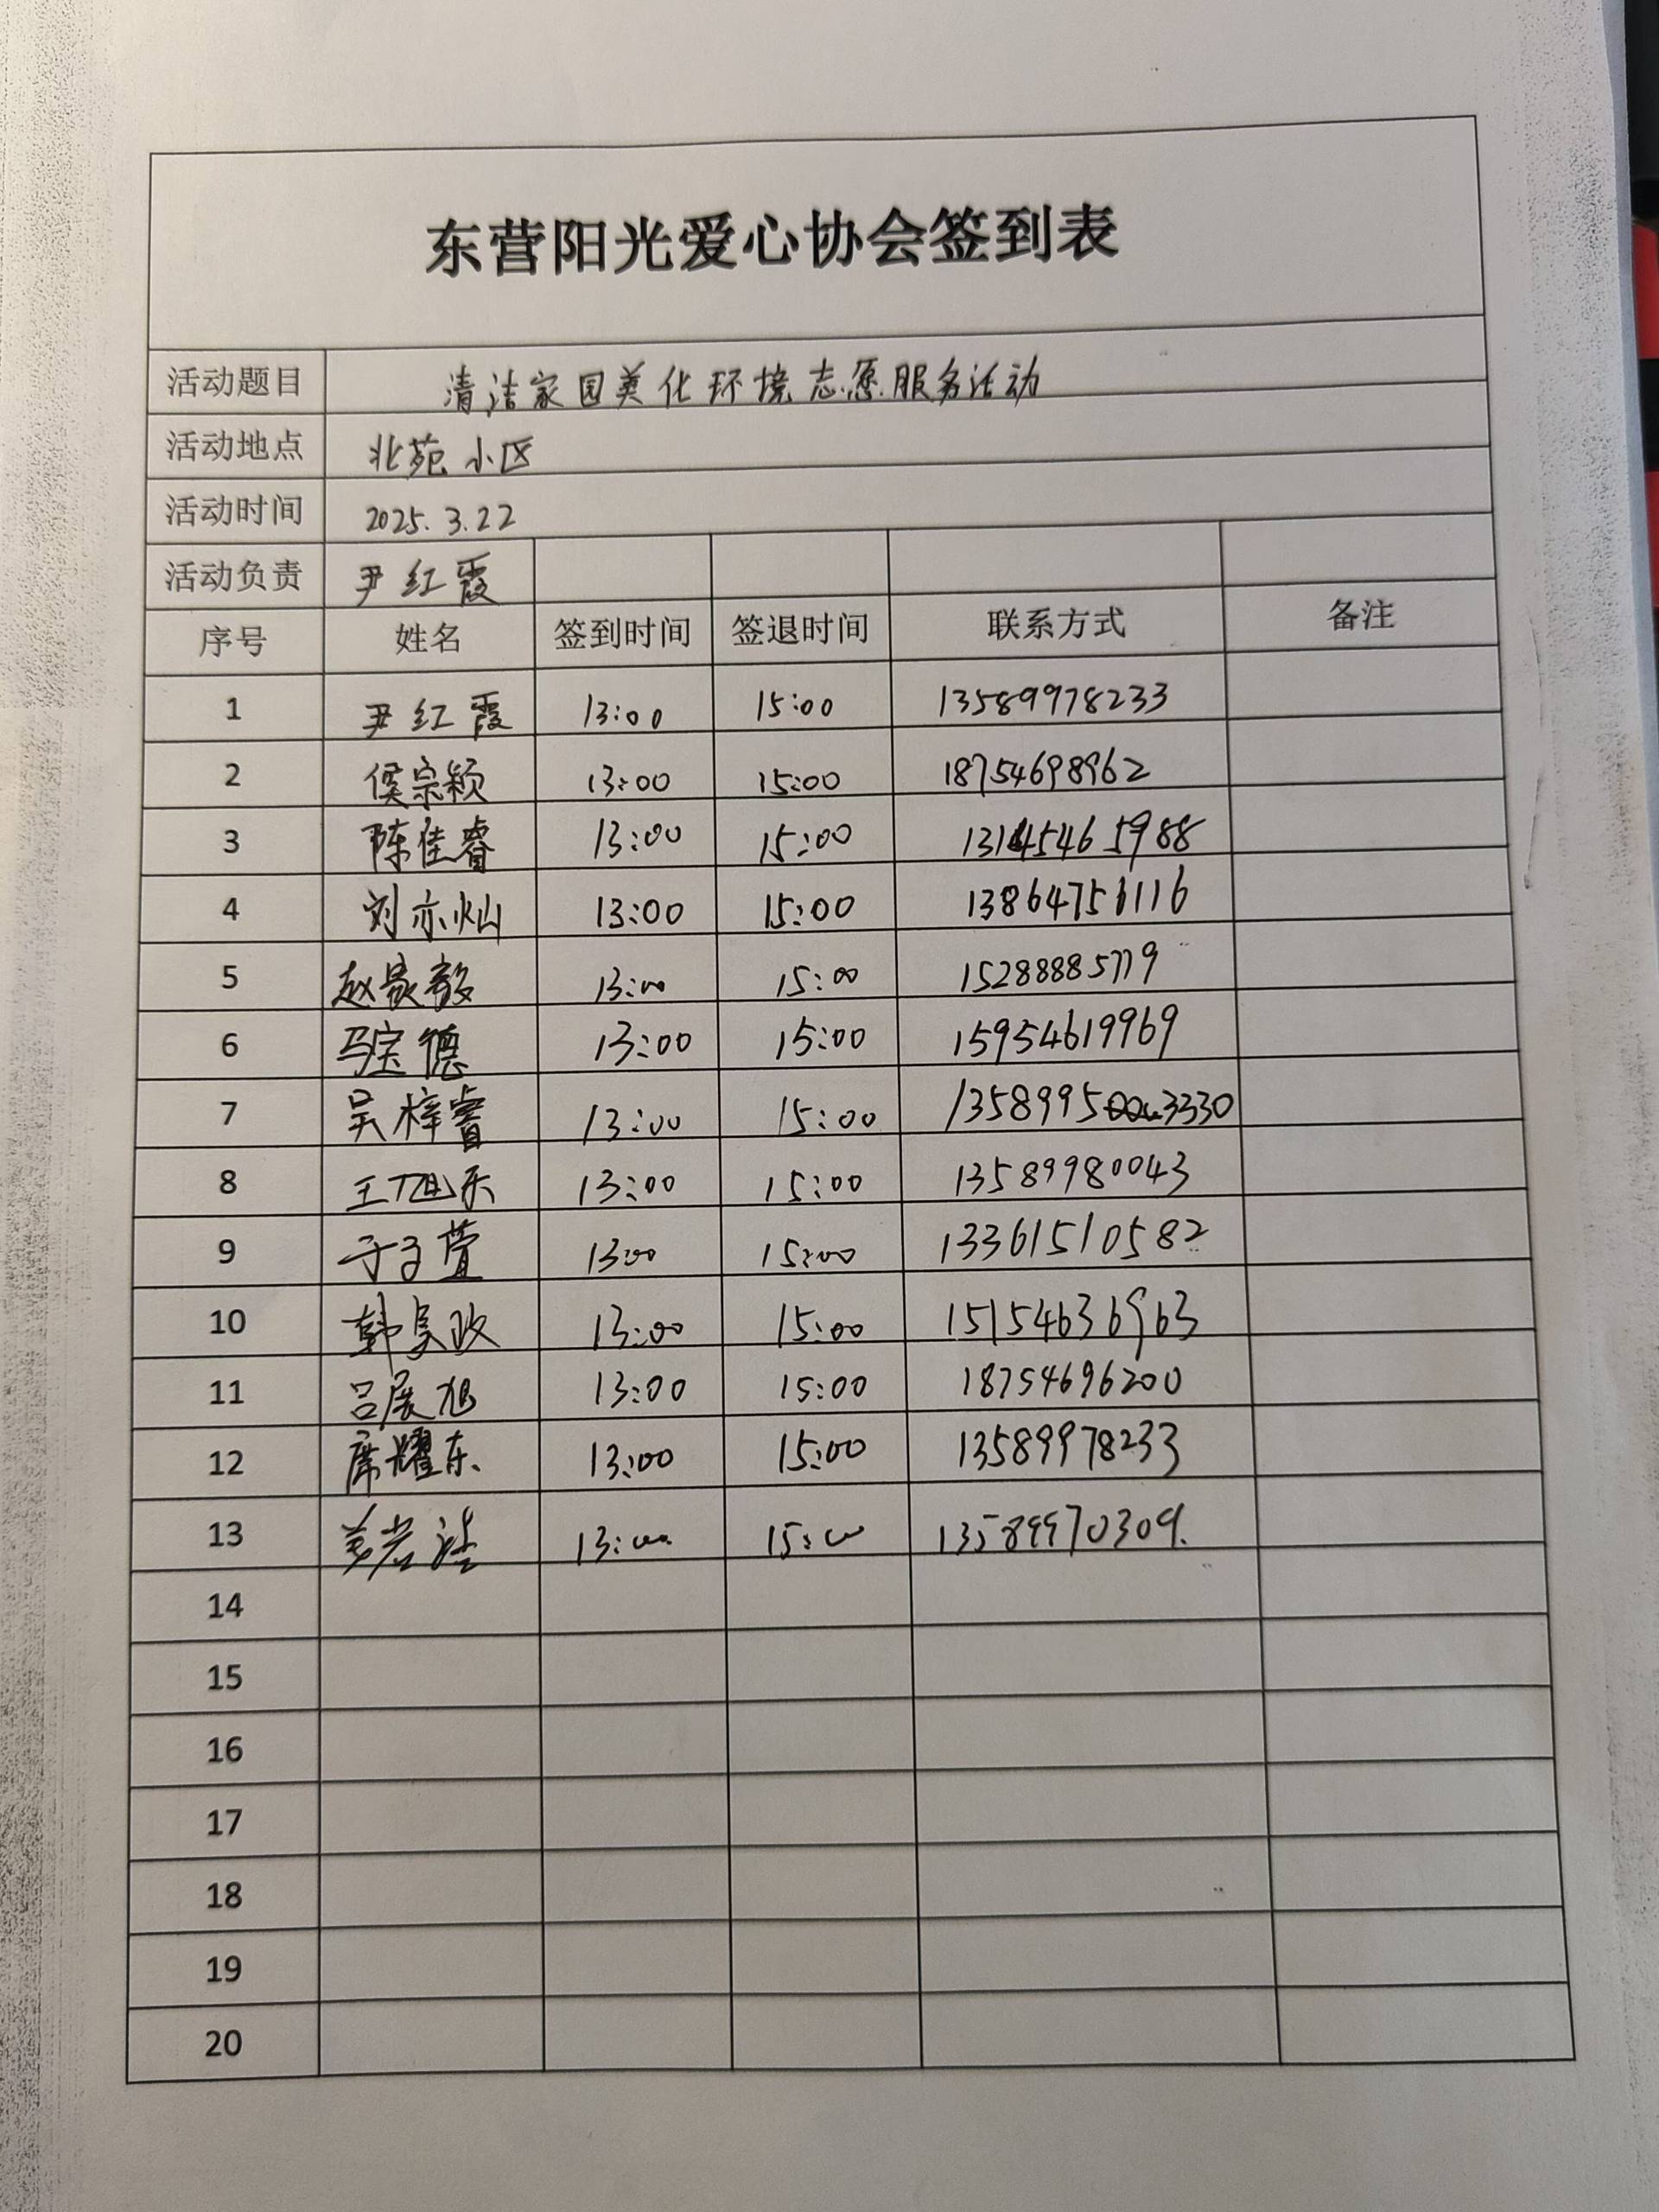 东营阳光爱心协会签到表
活动题目 清洁家园美化环境志愿服务活动
活动地点 北苑小区
活动时间 2025.3.22
活动负责 尹红霞
序号 姓名 签到时间 签退时间 联系方式 备注
1 尹红霞 13:00 15:00 13589978233
2 侯宗颖 13:00 15:00 18754698962
3 陈佳睿 13:00 15:00 13145465988
4 刘亦灿 13:00 15:00 13864756116
5 赵家毅 13:00 15:00 15288885779
6 马宝德 13:00 15:00 15954619969
7 吴梓睿 13:00 15:00 13589953330
8 王旭东 13:00 15:00 13589980043
9 于子萱 13:00 15:00 13361510582
10 韩昊政 13:00 15:00 15154636963
11 吕展旭 13:00 15:00 18754696200
12 席耀东 13:00 15:00 13589978233
13 13:00 15:00 13589970309.
14
15
16
17
18
19
20